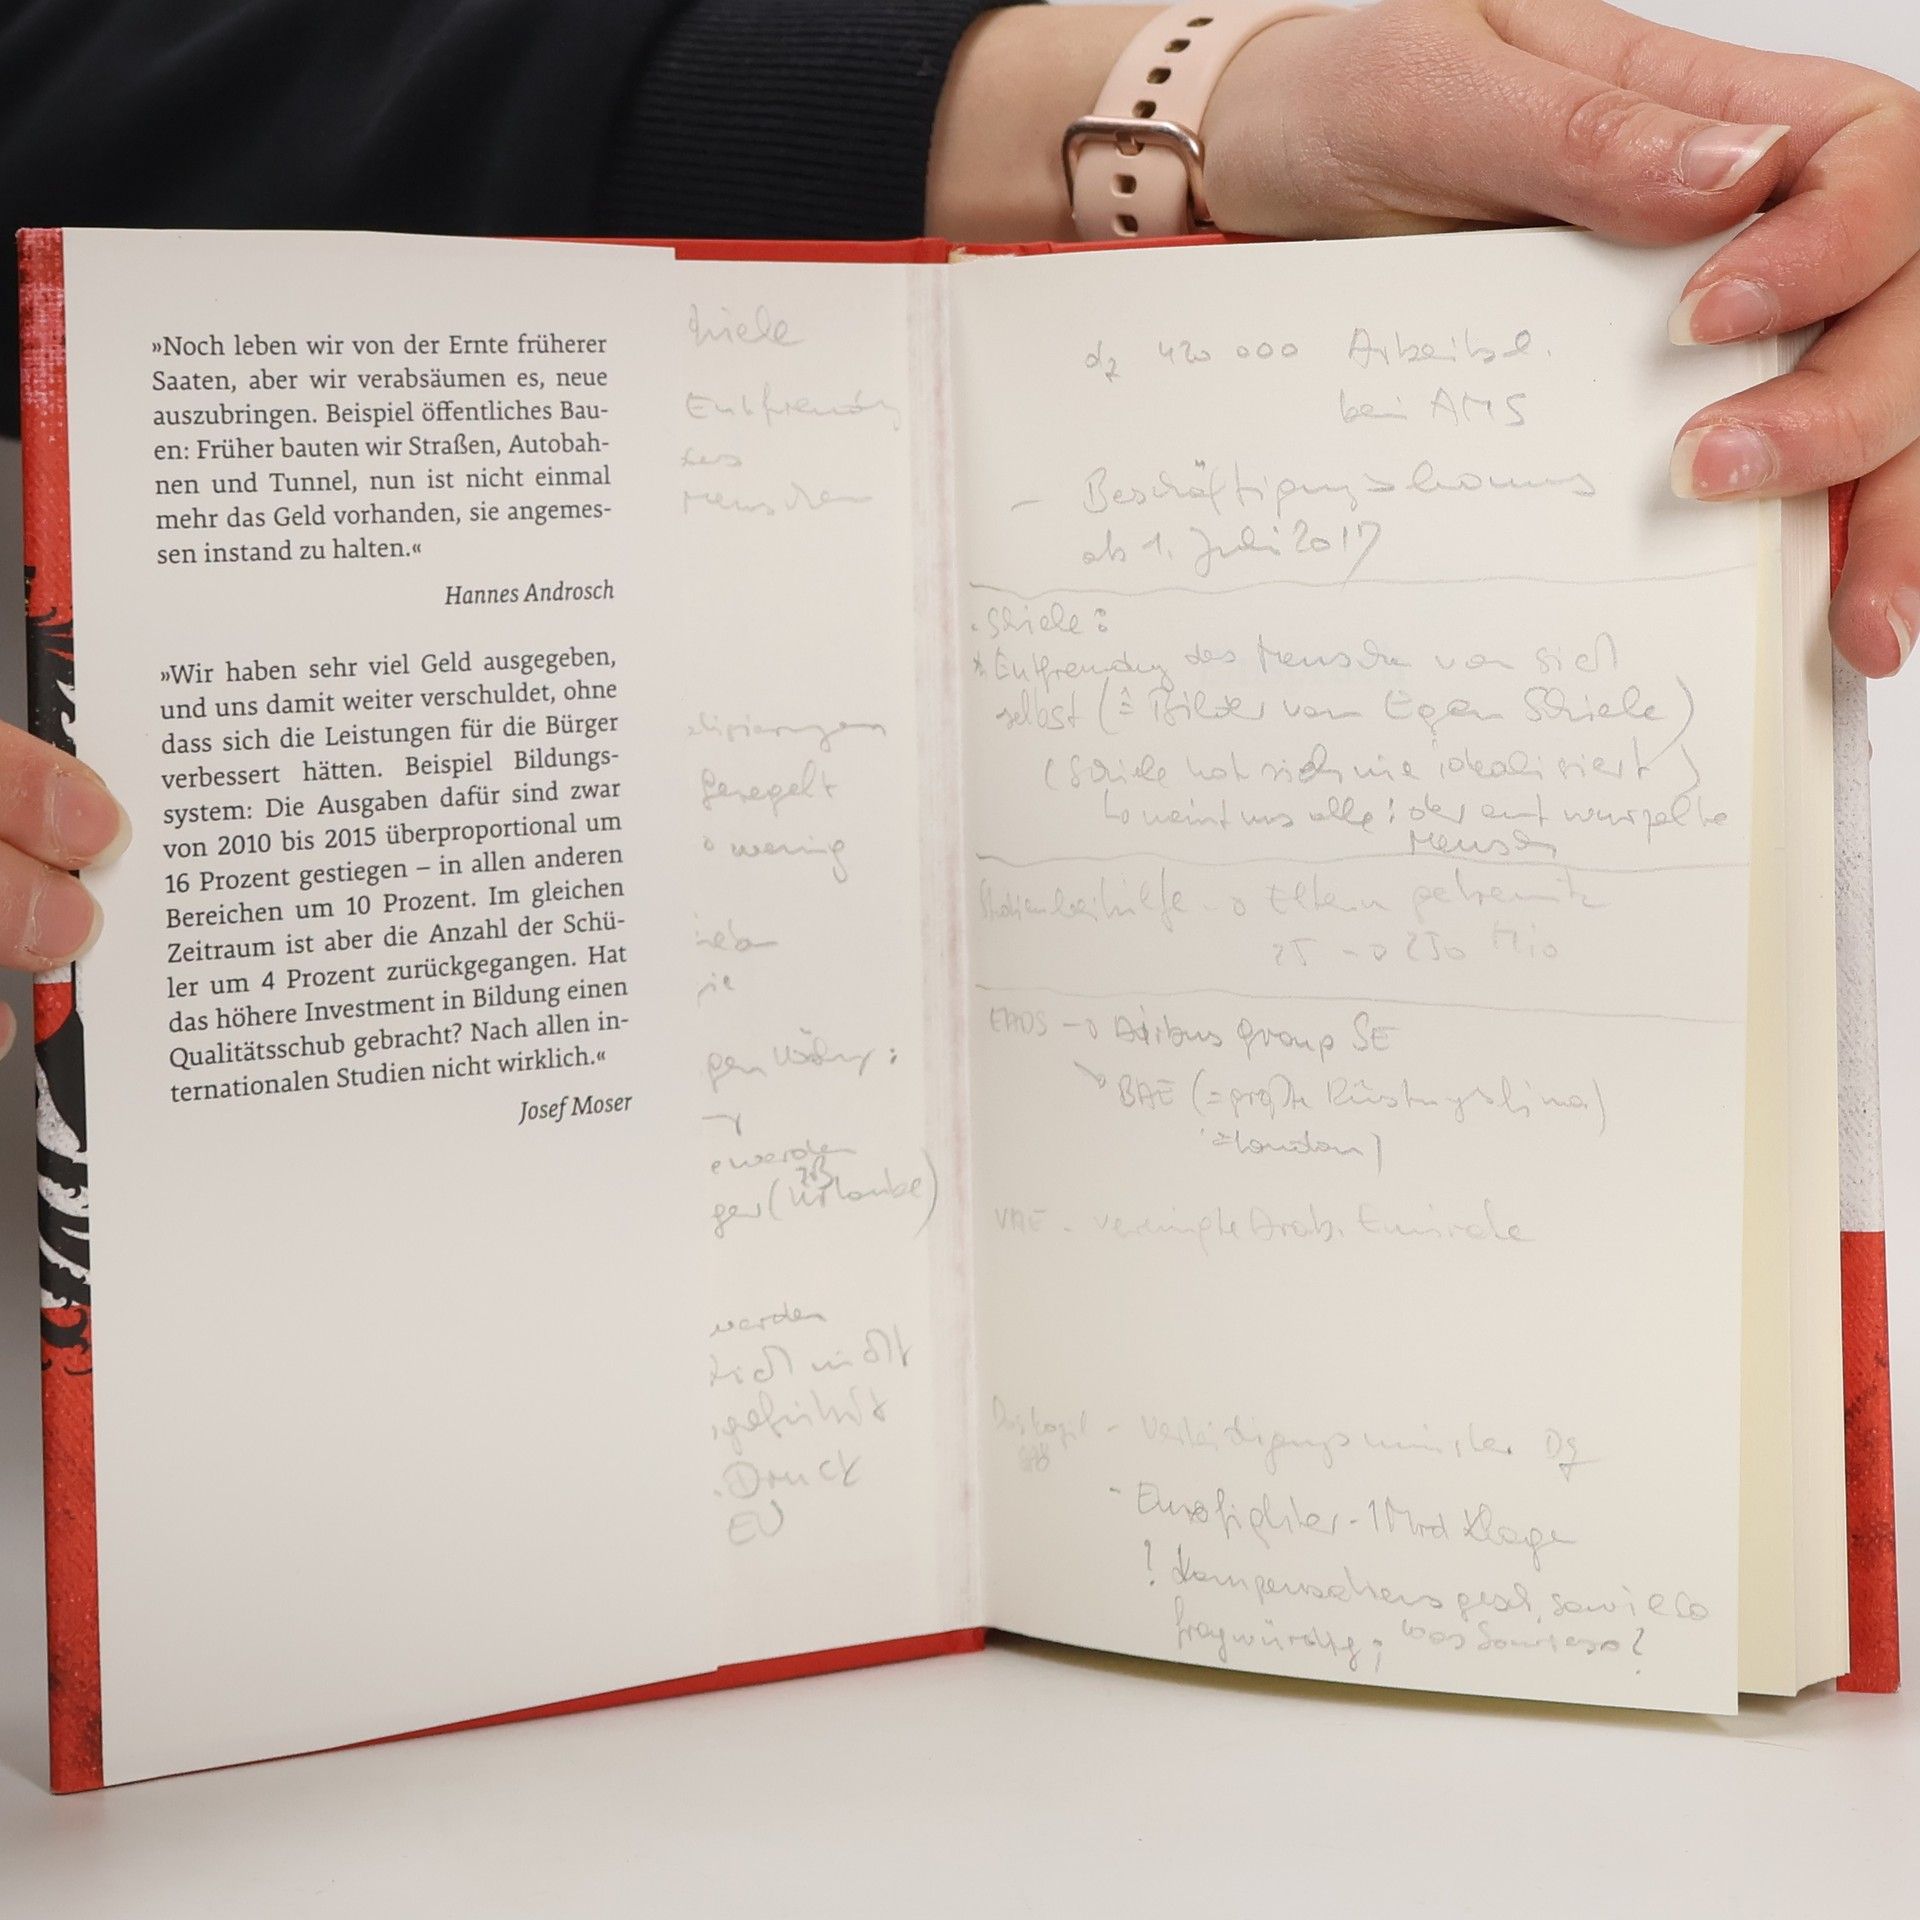 »Noch leben wir von der Ernte früherer
Saaten, aber wir verabsäumen es, neue
auszubringen. Beispiel öffentliches Bau-
en: Früher bauten wir Straßen, Autobah-
nen und Tunnel, nun ist nicht einmal
mehr das Geld vorhanden, sie angemes-
sen instand zu halten.«
Hannes Androsch
»Wir haben sehr viel Geld ausgegeben,
und uns damit weiter verschuldet, ohne
dass sich die Leistungen für die Bürger
verbessert hätten. Beispiel Bildungs-
system: Die Ausgaben dafür sind zwar
von 2010 bis 2015 überproportional um
16 Prozent gestiegen – in allen anderen
Bereichen um 10 Prozent. Im gleichen
Zeitraum ist aber die Anzahl der Schü-
ler um 4 Prozent zurückgegangen. Hat
das höhere Investment in Bildung einen
Qualitätsschub gebracht? Nach allen in-
ternationalen Studien nicht wirklich.«
Josef Moser
des
Menschen
geregelt
wenig
werden
nicht
Druck
EU
dz 420 000 Arbeitsl.
bei AMS
– Beschäftigungsbonus
ab 1. Juli 2017
Schiele:
* Entfremdung des Menschen von sich
selbst (≙ Bilder von Egon Schiele)
(Schiele hat sich nie idealisiert)
meint uns alle: der entwurzelte
Mensch
Studienbeihilfe → Eltern getrennt
25 → 250 Mio
EADS → Airbus Group SE
BAE (= größte Rüstungsfirma)
= London)
VAE – Vereinigte Arab. Emirate
Doskozil – Verteidigungsminister
- Eurofighter – 1 Mrd Klage
! Kompensationsgesch. sowieso
fragwürdig; was sowieso?